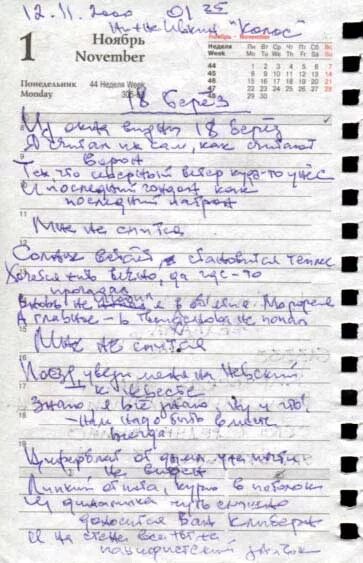 12.11.2000 01 25
"Колос"
1
Ноябрь
November
Понедельник
Monday
44 Неделя Week
Ноябрь - November
Неделя Week Пн Mo Вт Tu Ср We Чт Th Пт Fr Сб Sa Вс Su
44 1 2 3 4 5 6 7
45 8 9 10 11 12 13 14
46 15 16 17 18 19 20 21
47 22 23 24 25 26 27 28
48 29 30
18 берёз
8
Из окна видны 18 берёз
Я считал их сам, как считают
ворон
Тех что северный ветер куда-то унёс
И последний гондон как
последний патрон
11
Мне не спится
Солнце встаёт, становится теплее
Хочется жить вечно, да где-то
пропадал
Вновь не я в
А главное – в не попал
15
Мне не спится
Поезд увези меня на Невский
к невесте
Знаю я всё знаю, ну и что!
- Нам надо быть вместе
всегда!
19
Циферблат от дыма уже почти
не виден
Липкий от пота, курю в потолок
Из динамика чуть слышно
доносится Ван Клиберн
И на стене всё тот же
пацифистский значок